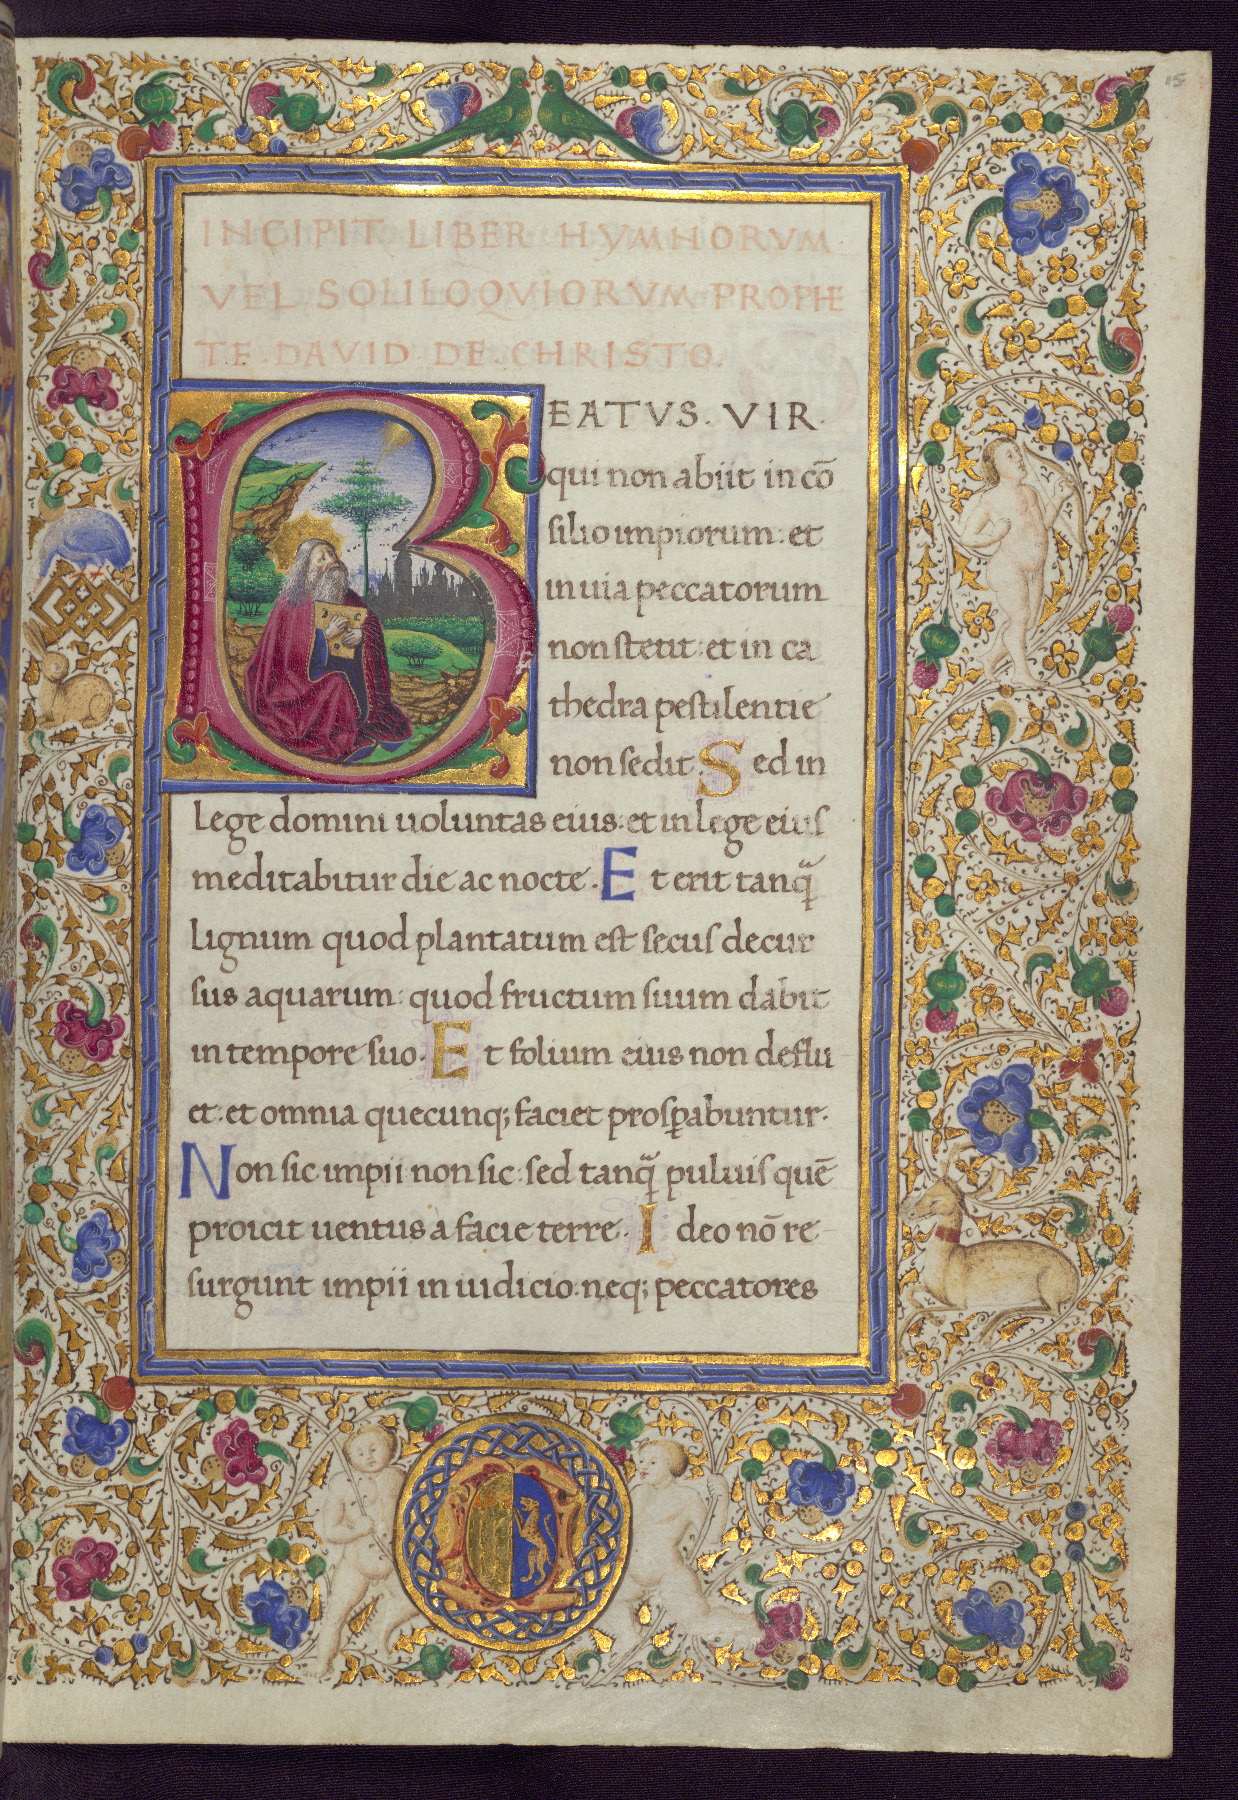 15
INCIPIT LIBER HYMNORVM
VEL SOLILOQVIORVM PROPHE
TE · DAVID · DE · CHRISTO.
BEATVS. VIR.
qui non abiit in cō
silio impiorum: et
in uia peccatorum
non stetit: et in ca
thedra pestilentie
non sedit. Sed in
lege domini uoluntas eius: et in lege eius
meditabitur die ac nocte. Et erit tanq̄
lignum quod plantatum est secus decur
sus aquarum: quod fructum suum dabit
in tempore suo. Et folium eius non deflu
et: et omnia quecunq; faciet prosꝑabuntur.
Non sic impii non sic: sed tanq̄ puluis quē
proicit uentus a facie terre. Ideo nō re
surgunt impii in iudicio: neq; peccatores